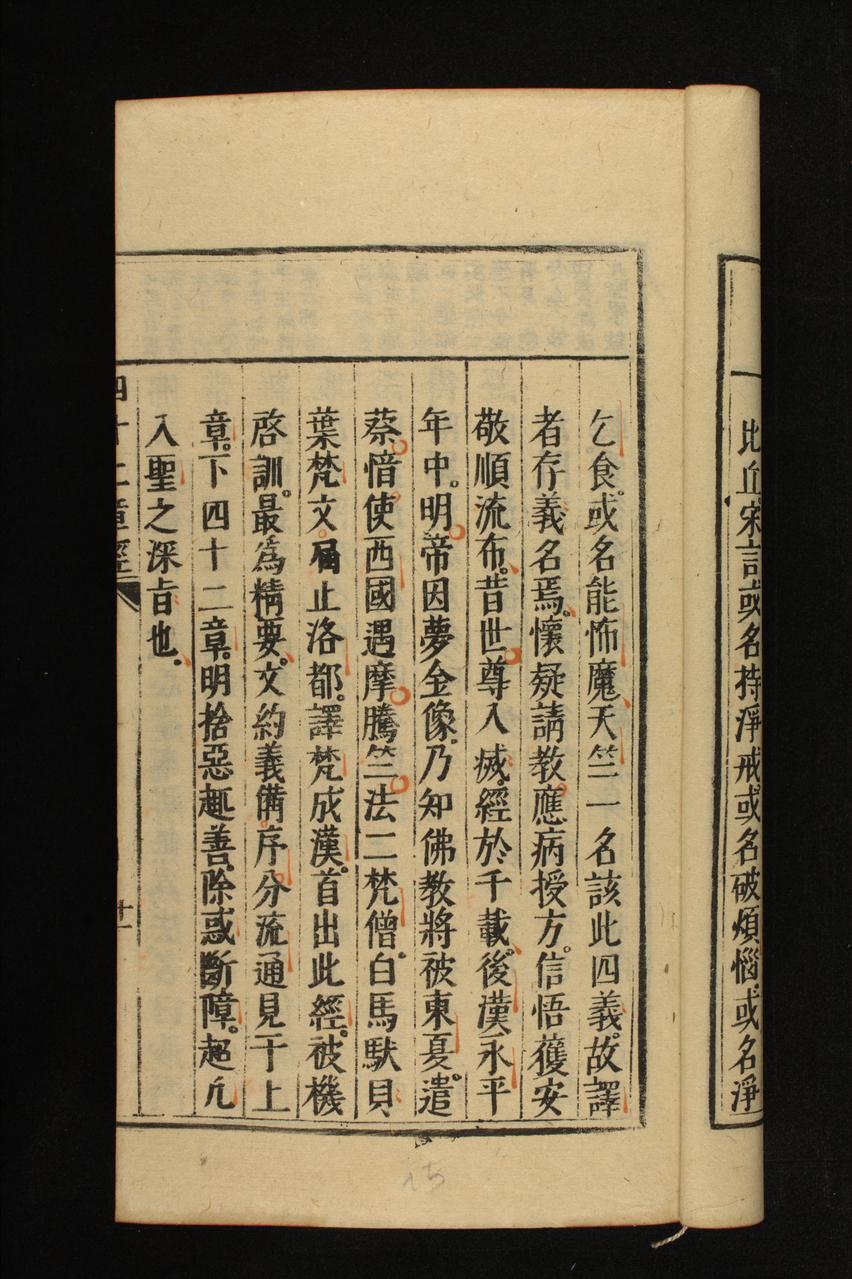 比丘宋言或名持淨戒或名破煩惱或名淨
乞食。或名能怖魔。天竺一名該此四義。故譯
者存義名焉。懷疑請教。應病授方。信悟獲安
敬順流布。昔世尊入滅。經於千載。後漢永平
年中。明帝因夢金像。乃知佛教將被東夏。遣
蔡愔使西國遇摩騰竺法二梵僧。白馬馱貝
葉梵文。屆止洛都。譯梵成漢。首出此經。被機
啓訓。最為精要。文約義備。序分流通見于上
章。下四十二章。明捨惡趣善。除惑斷障。超凡
入聖之深旨也。
四十二章經
十一
15